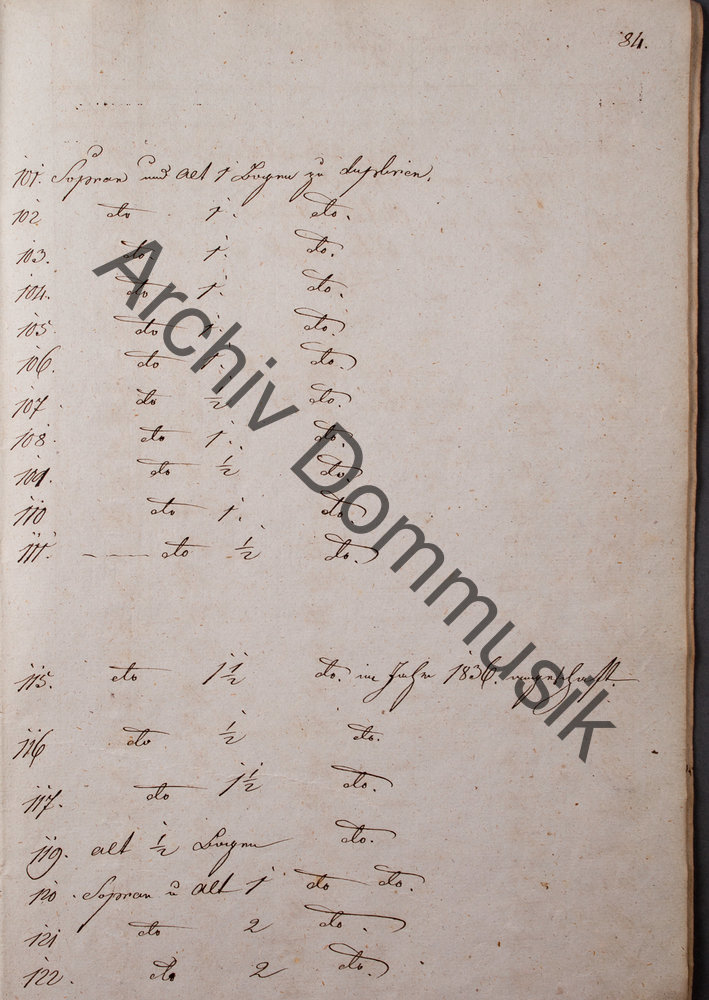 84.
101. Sopran und alt 1 Bogen zu dupliren.
102 do 1. do.
103. do. 1. do.
104. do 1. do.
105 do 1. do.
106. do 1. do.
107 do ½ do.
108. do 1. do.
109. do ½ do.
110 do 1. do.
111. do ½ do.
115. do 1½ do. im Jahr 1836. angeschafft.
116 do ½ do.
117. do 1½ do.
119. alt ½ Bogen do.
120. Sopran u alt 1 do do.
121 do 2 do.
122. do 2 do.
Archiv Dommusik